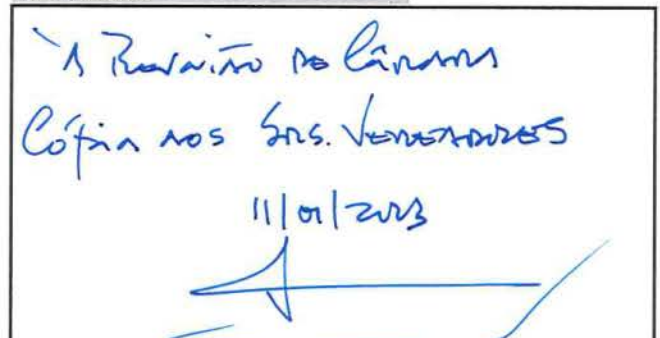 À Reunião de Câmara
Cópia aos Srs. Vereadores
11/01/2023